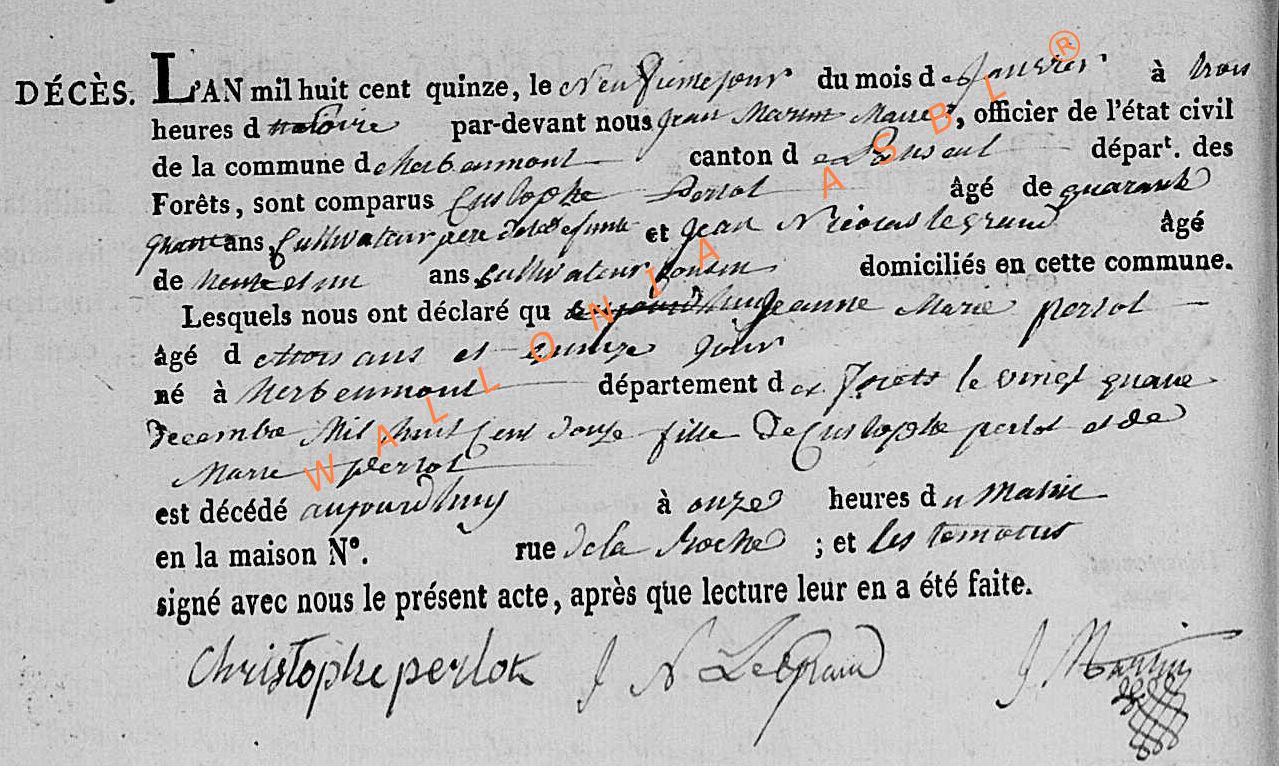 DÉCÈS. L'AN mil huit cent quinze, le Neufieme jour du mois de Janvier à trois
heures d par-devant nous Jean Martin Maire, officier de l'état civil
de la commune d herbeumont canton d départ. des
Forêts, sont comparus Cristophe Perlot âgé de quarante
quatre ans, Cultivateur pere de la defunte et Jean Nicolas legrand Âgé
de trente et un ans, Cultivateur Cousin domiciliés en cette commune.
Lesquels nous ont déclaré qu Jeanne Marie perlot
âgé de trois ans et quinze jours
né à herbeumont département des Forets le vingt quatre
Decembre Mil huit Cent douze fille De Cristophe perlot et de
Marie perlot
est décédé aujourdhuy à onze heures du Matin
en la maison N°. rue de la Roche ; et les temoins
signé avec nous le présent acte, après que lecture leur en a été faite.
Christophe perlot J N LeGrand J Martin
WALLONIA ASBL ®